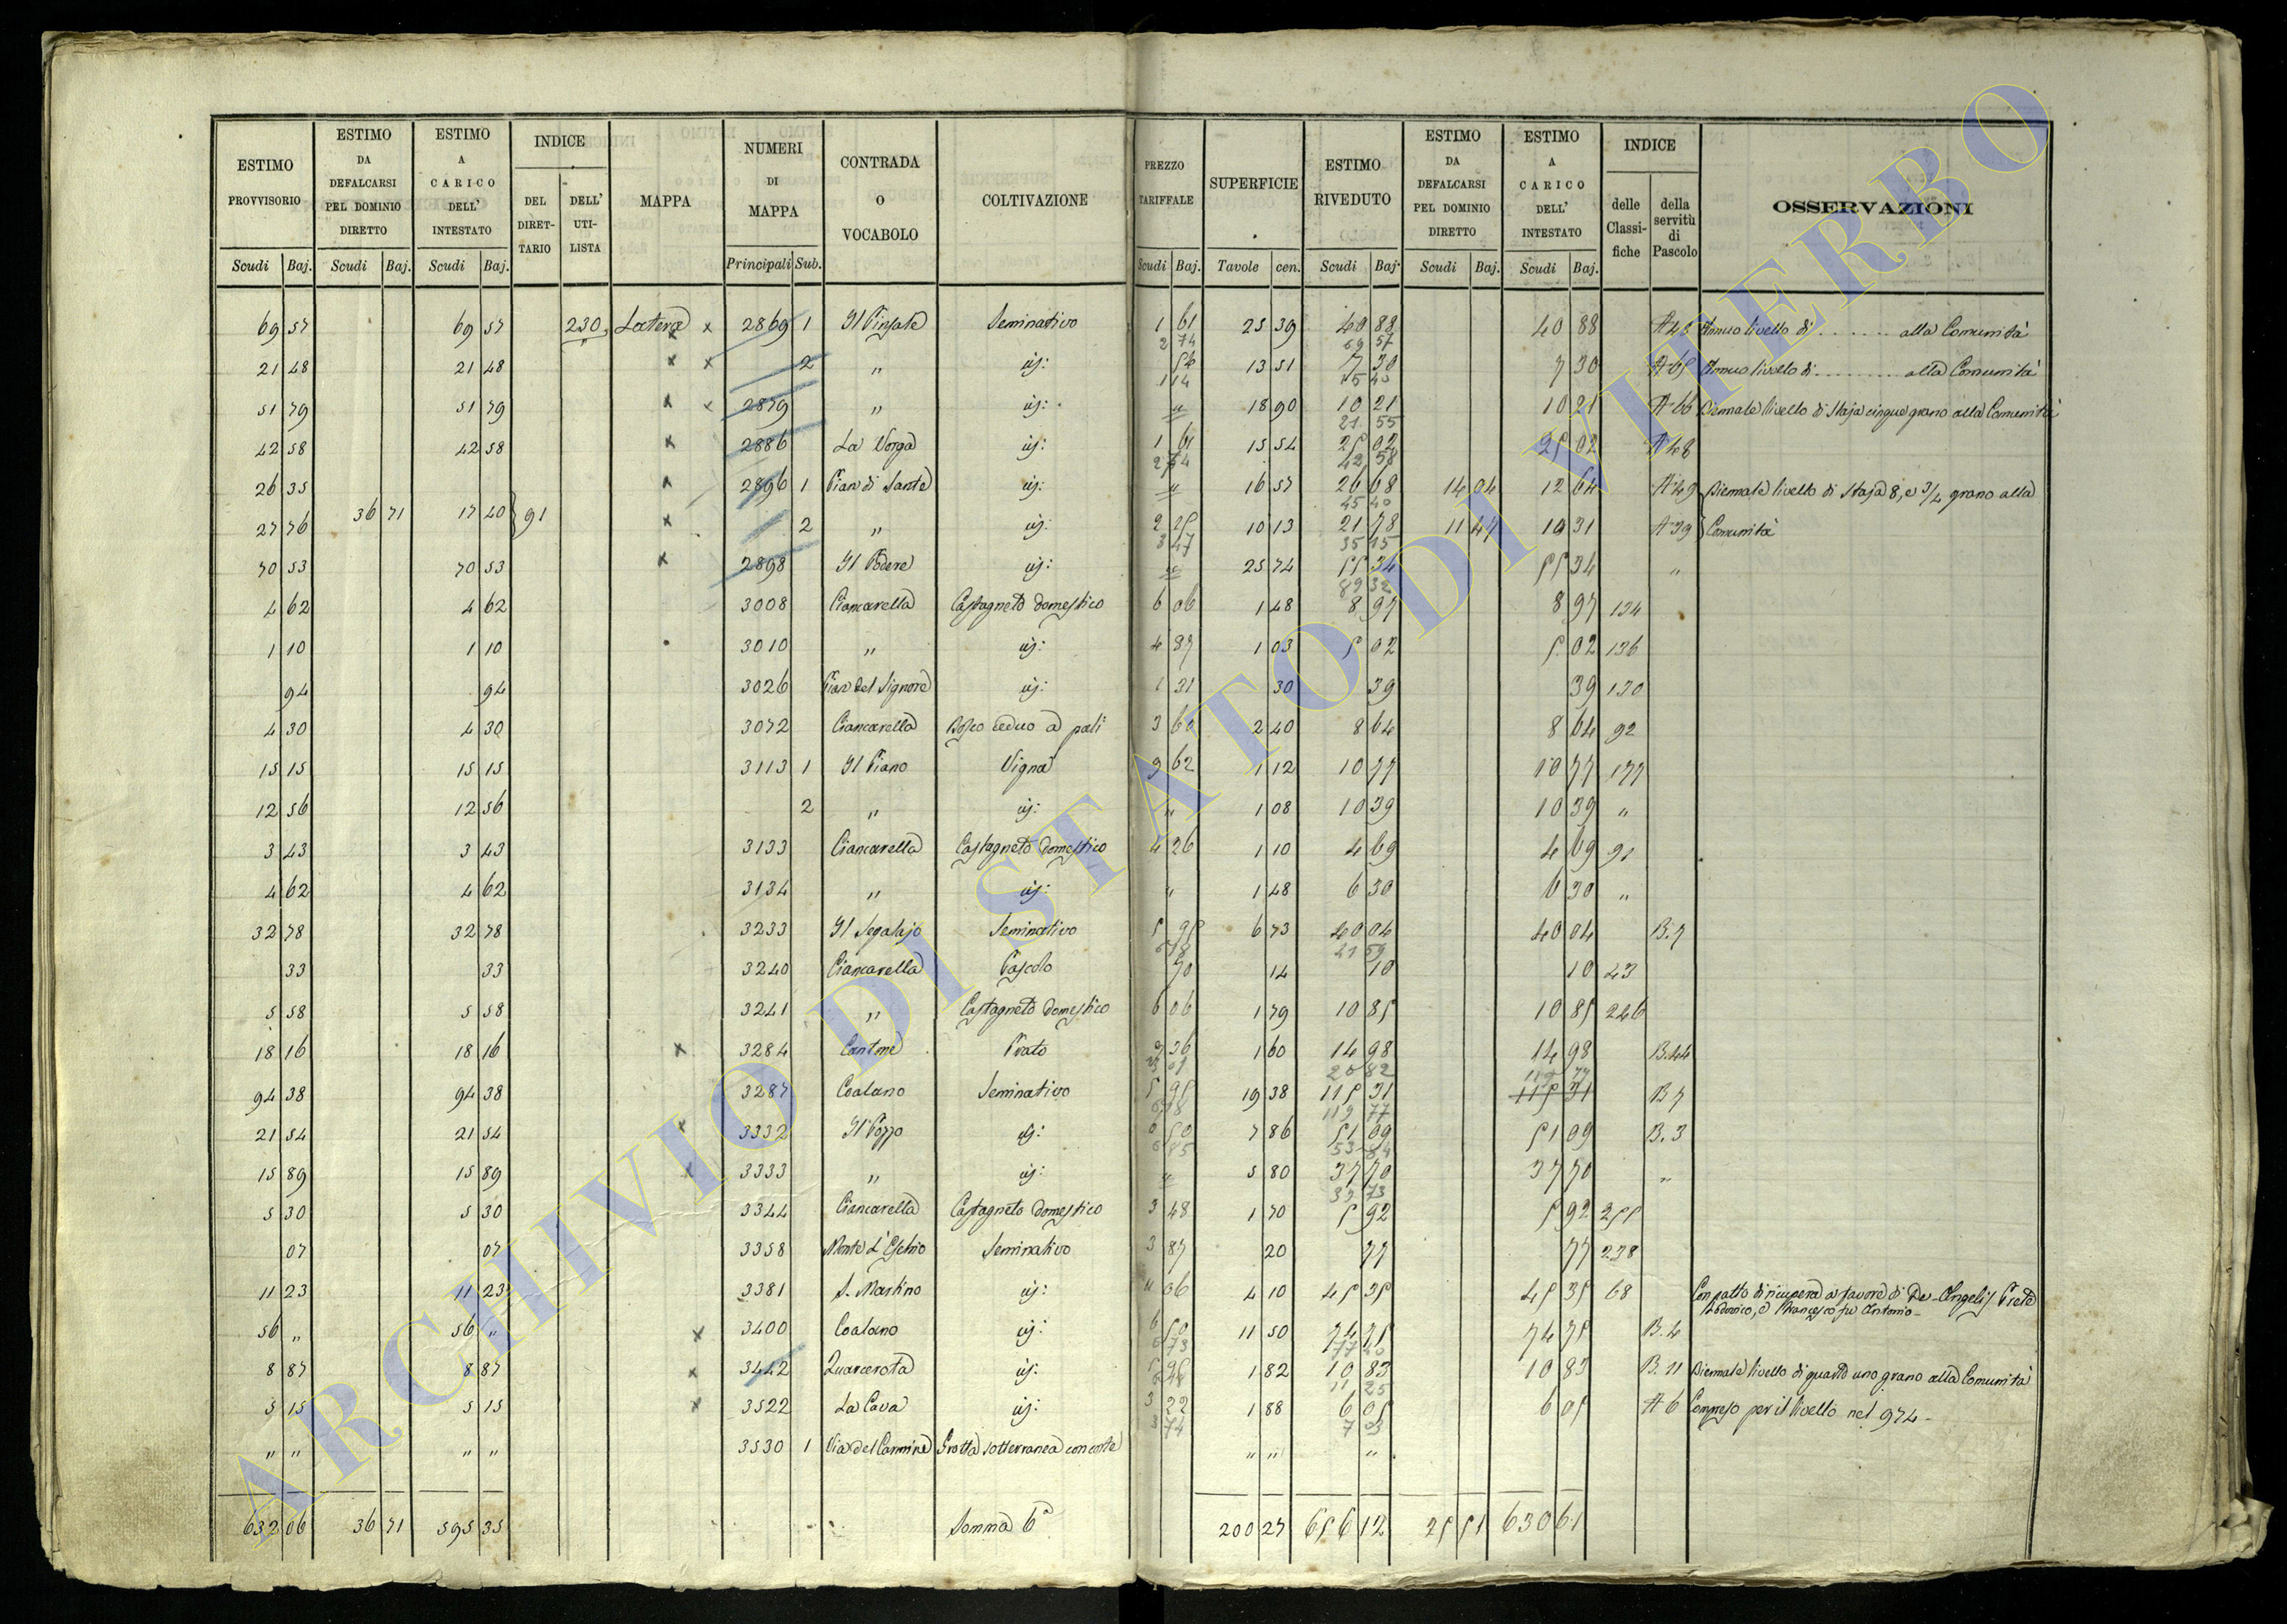 ESTIMO PROVVISORIO | ESTIMO DA DEFALCARSI PEL DOMINIO DIRETTO | ESTIMO A CARICO DELL' INTESTATO | INDICE DEL DIRET-TARIO | DELL' UTI-LISTA | MAPPA | NUMERI DI MAPPA | CONTRADA O VOCABOLO | COLTIVAZIONE | PREZZO TARIFFALE | SUPERFICIE | ESTIMO RIVEDUTO | ESTIMO DA DEFALCARSI PEL DOMINIO DIRETTO | ESTIMO A CARICO DELL' INTESTATO | INDICE delle Classi-fiche | della servitù di Pascolo | OSSERVAZIONI
Scudi Baj. | Scudi Baj. | Scudi Baj. | Principali Sub. | Scudi Baj. | Tavole cen. | Scudi Baj. | Scudi Baj. | Scudi Baj.
69 57 | 69 57 | 230 | Latera | 2869 1 | Il Pinzale | Seminativo | 1 61 | 25 39 | 40 88 | 40 88 | Annuo livello di ........ alla Comunità
2 74 | 69 57
21 48 | 21 48 | 2 | " | id: | 54 | 13 51 | 7 30 | 7 30 | A 65 | Annuo livello di ........ alla Comunità
1 14 | 15 40
51 79 | 51 79 | 2879 | " | id: | " | 18 90 | 10 21 | 10 21 | A 66 | Biennale livello di Staja cinque grano alla Comunità
21 55
42 58 | 42 58 | 2886 | La Vorga | id: | 1 61 | 15 54 | 25 02 | 25 02 | A 48
2 74 | 42 58
26 35 | 2896 1 | Pian di Sante | id: | " | 16 57 | 26 68 | 14 04 | 12 64 | A 49 | Biennale livello di Staja 8, e 3/4 grano alla
45 40
36 71 | 17 40 | 91
27 76 | 2 | " | id: | 2 15 | 10 13 | 21 78 | 11 47 | 10 31 | A 39 | Comunità
3 47 | 35 15
70 53 | 70 53 | 2898 | Il Podere | id: | " | 25 74 | 55 34 | 55 34 | "
89 32
4 62 | 4 62 | 3008 | Ciancarella | Castagneto domestico | 6 06 | 1 48 | 8 97 | 8 97 | 134
1 10 | 1 10 | 3010 | " | id: | 4 87 | 1 03 | 5 02 | 5 02 | 136
94 | 94 | 3026 | Pian del Signore | id: | 1 31 | 30 | 39 | 39 | 130
4 30 | 4 30 | 3072 | Ciancarella | Bosco ceduo a pali | 3 60 | 2 40 | 8 64 | 8 64 | 92
15 15 | 15 15 | 3113 1 | Il Piano | Vigna | 9 62 | 1 12 | 10 77 | 10 77 | 177
12 56 | 12 56 | 2 | " | id: | " | 1 08 | 10 39 | 10 39 | "
3 43 | 3 43 | 3133 | Ciancarella | Castagneto domestico | 4 26 | 1 10 | 4 69 | 4 69 | 91
4 62 | 4 62 | 3134 | " | id: | " | 1 48 | 6 30 | 6 30 | "
32 78 | 32 78 | 3233 | Il Segatajo | Seminativo | 5 95 | 6 73 | 40 04 | 40 04 | B. 7
6 18 | 41 59
33 | 33 | 3240 | Ciancarella | Pascolo | 70 | 14 | 10 | 10 | 43
5 58 | 5 58 | 3241 | " | Castagneto domestico | 6 06 | 1 79 | 10 85 | 10 85 | 246
18 16 | 18 16 | 3284 | Cantone | Prato | 9 36 | 1 60 | 14 98 | 14 98 | B. 44
20 82 | 119 77
94 38 | 94 38 | 3287 | Coalano | Seminativo | 5 95 | 19 38 | 115 31 | 115 31 | B 7
6 18 | 119 77
21 54 | 21 54 | 3332 | Il Pozzo | id: | 6 50 | 7 86 | 51 09 | 51 09 | B. 3
6 85 | 53 84
15 89 | 15 89 | 3333 | " | id: | " | 5 80 | 37 70 | 37 70 | "
39 73
5 30 | 5 30 | 3344 | Ciancarella | Castagneto domestico | 3 48 | 1 70 | 5 92 | 5 92 | 255
07 | 07 | 3358 | Monte L'Eschio | Seminativo | 3 87 | 20 | 77 | 77 | 238
11 23 | 11 23 | 3381 | S. Martino | id: | 11 06 | 4 10 | 45 35 | 45 35 | 68 | Con patto di ricupera a favore di De-Angelis Prete
Lodovico, e Francesco fu Antonio-
56 " | 56 " | 3400 | Coalano | id: | 6 50 | 11 50 | 74 75 | 74 75 | B. 4
6 73 | 77 40
8 87 | 8 87 | 3442 | Quarcerota | id: | 5 95 | 1 82 | 10 83 | 10 83 | B. 11 | Biennale livello di quarto uno grano alla Comunità
6 18 | 11 25
5 15 | 5 15 | 3522 | La Cava | id: | 3 22 | 1 88 | 6 05 | 6 05 | A 6 | Compreso per il livello nel 974-
3 74 | 7 03
" " | " " | 3530 1 | Via del Carmine | Grotta sotterranea con corte | " " | "
632 06 | 36 71 | 595 35 | Somma 6ª | 200 27 | 656 12 | 25 51 | 630 61
ARCHIVIO DI STATO DI VITERBO